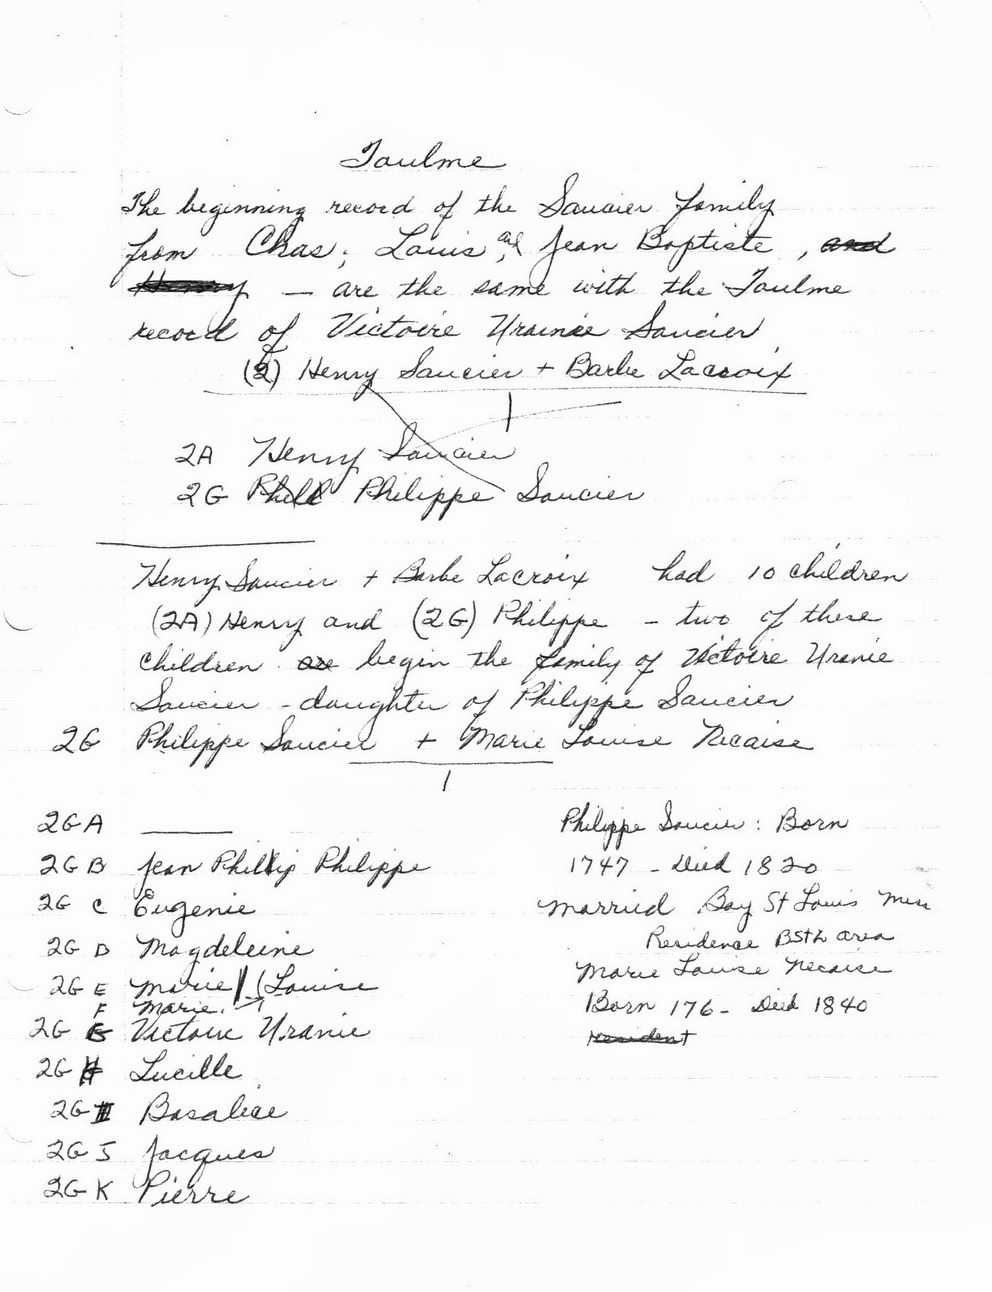 Toulme
The beginning record of the Saucier family
from Chas; Louis, and Jean Baptiste, and
Henry — are the same with the Toulme
record of Victoire Urainie Saucier
(2) Henry Saucier + Barbe Lacroix
2A Henry Saucier
2G Phill Philippe Saucier
Henry Saucier + Barbe Lacroix had 10 children
(2A) Henry and (2G) Philippe - two of these
children are begin the family of Victoire Uranie
Saucier - daughter of Philippe Saucier
2G Philippe Saucier + Marie Louise Necaise
2GA ____
2G B Jean Phillip Philippe
2G C Eugenie
2G D Magdeleine
2G E Marie (Louise
F Marie.
2G G Victoire Uranie
2G H Lucille
2G I Basalice
2G J Jacques
2G K Pierre
Philippe Saucier: Born
1747 - Died 1820
Married Bay St Louis Miss
Residence BStL area
Marie Louise Necaise
Born 176- Died 1840
Resident